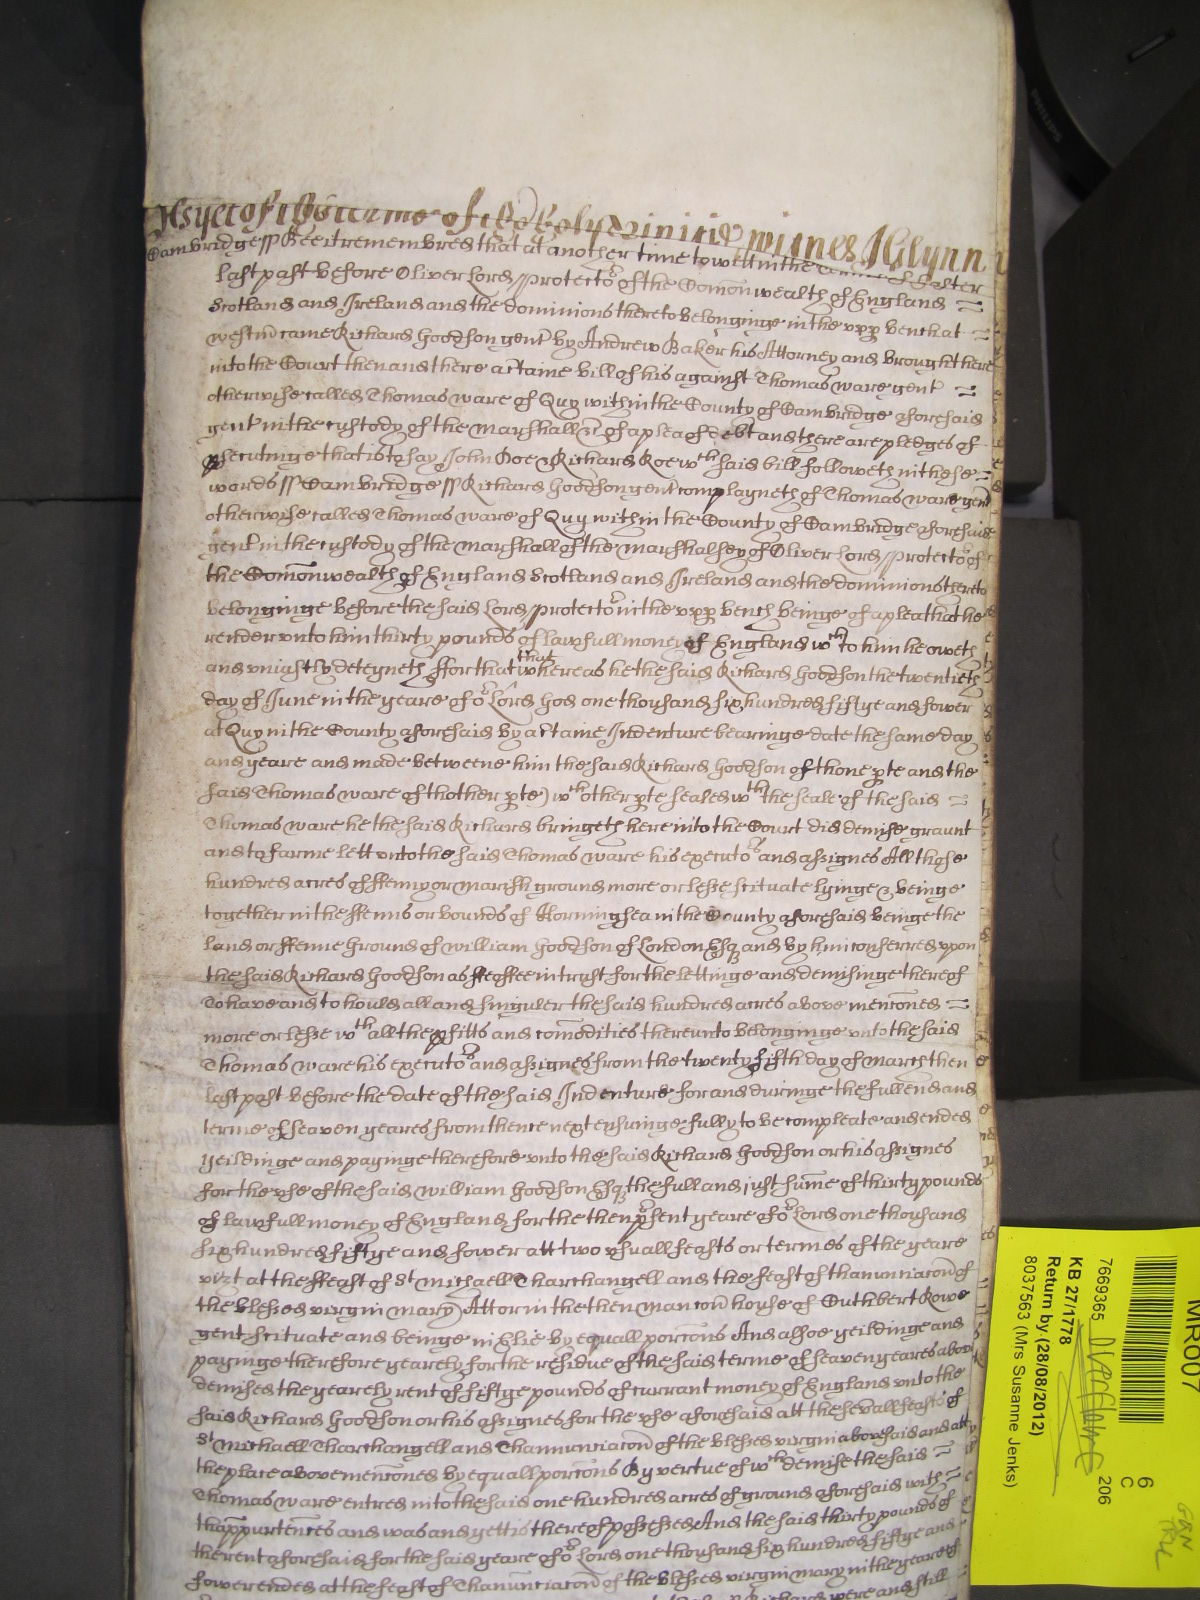 Yet of the terme of the holy Trinitie witnes J Glynn
Cambridge ss Bee it remembred that at another time to witt in the terme of Easter
last past before Oliver Lord Protector of the Comonwealth of England
Scotland and Ireland and the dominions thereto belonginge in the upp bench at
westm came Richard Hoodson gent by Andrew Baker his Attorney and brought here
into the Court then and there a certaine bill of his against Thomas Ware gent
otherwise called Thomas Ware of Quy within the County of Cambridge aforesaid
gent in the custody of the marshall &c of a plea of debt and there are pledges of
psecutinge that is to say John Doe & Richard Roe wch said bill followeth in these
words ss Cambridge ss Richard Hoodson gent complayneth of Thomas Ware gent
otherwise called Thomas Ware of Quy within the County of Cambridge aforesaid
gent in the custody of the marshall of the marshalsey of Oliver Lord Protector of
the Comonwealth of England Scotland and Ireland and the dominions thereto
belonginge before the said Lord Protector in the upp bench beinge of a plea that he
render unto him thirty pounds of lawfull money of England wch to him he oweth
and uniustly deteyneth ffor that that whereas he the said Richard Hoodson the twentieth
day of June in the yeare of or Lord God one thousand six hundred fiftye and fower
at Quy in the County aforesaid by a certaine Indenture bearinge date the same day
and yeare and made betweene him the said Richard Hoodson of thone pte and the
said Thomas Ware of thother pte) wch other pte sealed wth the seale of the said
Thomas Ware he the said Richard bringeth here into the Court did demise graunt
and to farme lett unto the said Thomas Ware his executors and assignes All those
hundred acres of ffenny or marish ground more or lesse scituate lyinge & beinge
together in the ffenns or bounds of Horningsea in the County aforesaid beinge the
land or ffenne ground of William Hoodson of London Esq and by him conferred upon
the said Richard Hoodson as ffeoffee in trust for the lettinge and demisinge thereof
To have and to hould all and singuler the said hundred acres above menconed
more or lesse wth all the pfitts and comodities thereunto belonginge unto the said
Thomas Ware his executors and assignes from the twenty fifth day of march then
last past before the date of the said Indenture for and duringe the full end and
terme of seaven yeares from thence next ensuinge fully to be compleate and ended
Yeildinge and payinge therefore unto the said Richard Hoodson or his assignes
for the use of the said William Hoodson Esq the full and just sume of thirty pounds
of lawfull money of England for the then psent yeare of or Lord one thousand
six hundred fiftye and fower att two usuall feasts or termes of the yeare
vizt at the ffeast of St Michaell Tharchangell and the feast of thanunciacon of
the blessed virgin mary) Att or in the then mancon house of Cuthbert Rowe
gent scituate and beinge in Elie by equall porcons And alsoe yeildinge and
payinge therefore yearely for the residue of the said terme of seaven yeares above
demised the yearely rent of fiftye pounds of currant money of England unto the
said Richard Hoodson or his assignes for the use aforesaid att the sevall feasts of
St Michaell Tharchangell and Thannunciacon of the blessed virgin abovesaid and att
the place above menconed by equall porcons By vertue of wch demise the said
Thomas Ware entred into the said one hundred acres of ground aforesaid with
thappurtences and was and yett is thereof possessed And the said thirty pounds of
the rent aforesaid for the said yeare of or Lord one thousand six hundred fiftye and
fower ended at the feast of Thanunciacon of the blessed virgin mary in the yeare of
Richard were and still
PHILIPS
MR007
7669365
206
6
C
KB 27/1778
Return by (28/08/2012)
8037563 (Mrs Susanne Jenks)